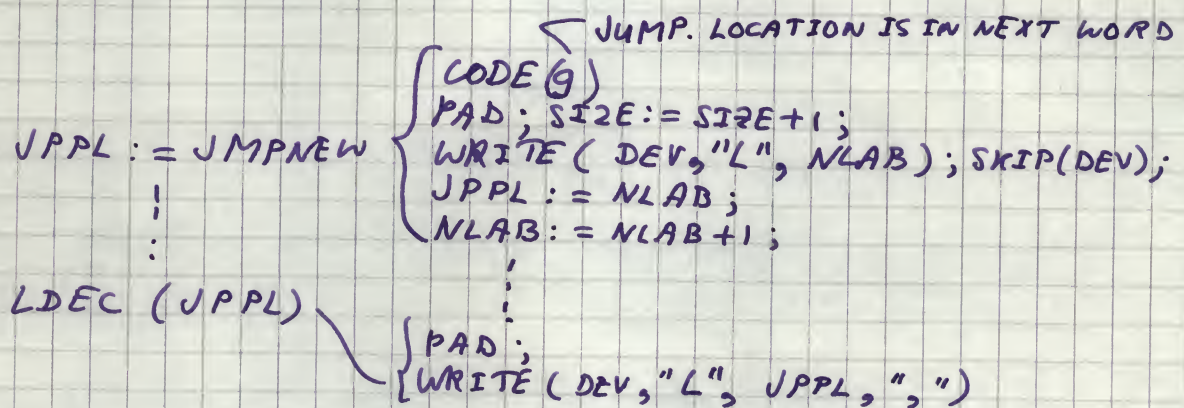 JUMP. LOCATION IS IN NEXT WORD
CODE(9)
PAD; SIZE:= SIZE+1;
JPPL := JMPNEW
WRITE( DEV,"L", NLAB); SKIP(DEV);
JPPL := NLAB;
NLAB:= NLAB+1;
LDEC (JPPL)
PAD;
WRITE( DEV,"L", JPPL, ",")